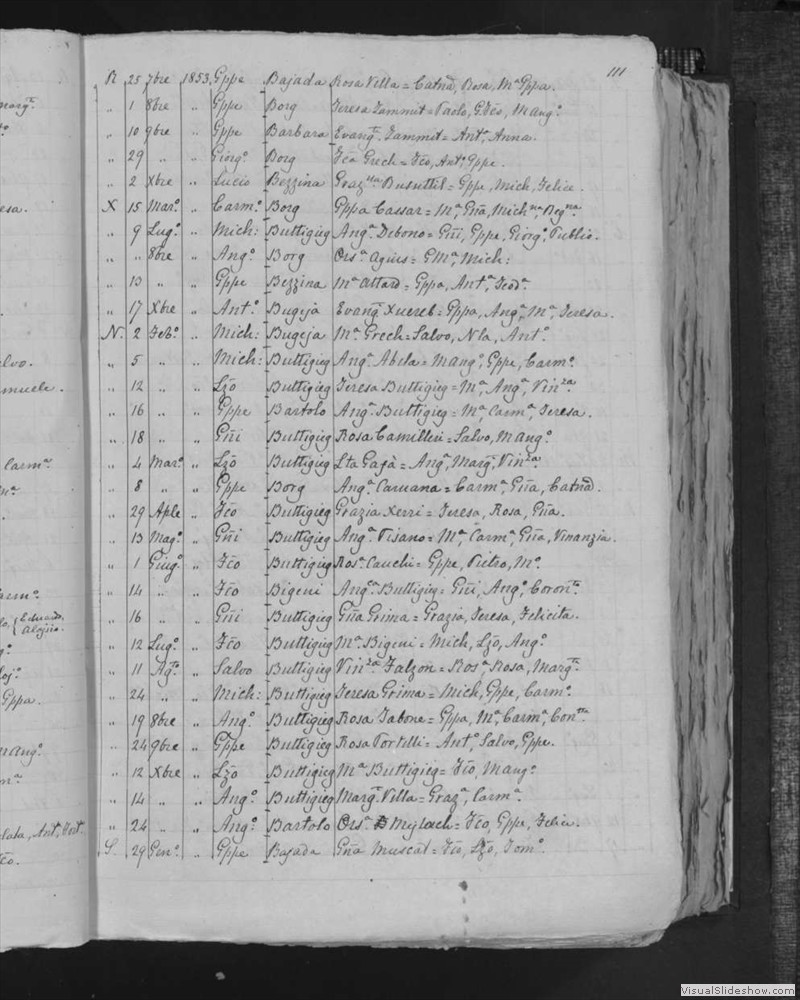 arm.
esa.
alvo.
amuele.
Carm.ª
Eduardo,
Aloysio.
Gppa.
111
R 25 7bre 1853 Gppe Bajada Rosa Villa = Catnã, Rosa, M.ª Gppa.
" 1 8bre " Gppe Borg Teresa Zammit = Paolo, G.Fcõ, M Ang.º
" 10 9bre " Gppe Barbara Evang.ª Zammit = Ant.º, Anna.
" 29 " " Giorg.º Borg Fcã Grech = Fcõ, Ant.º, Gppe.
" 2 Xbre " Lucio Bezzina Graz.na Busuttil = Gppe, Mich, Felice.
X 15 Mar.º " Carm.º Borg Gppa Cassar = M.ª, Gña, Mich.na, Reg.na
" 9 Lug.º " Mich: Buttigieg Ang.ª Debono = Gñi, Gppe, Giorg.º, Publio.
" " 8bre " Ang.º Borg Ors.ª Agius = G M.ª, Mich:
" 13 " " Gppe Bezzina M.ª Attard = Gppa, Ant.ª, Teod.ª
" 17 Xbre " Ant.º Bugeja Evang.ª Xuereb = Gppa, Ang.ª, M.ª, Teresa.
N. 2 Feb.º " Mich: Bugeja M.ª Grech = Salvo, Nla, Ant.º
" 5 " " Mich: Buttigieg Ang.ª Abela = M Ang.º, Gppe, Carm.º
" 12 " " Lzõ Buttigieg Teresa Buttigieg = M.ª, Ang.ª, Vin.za
" 16 " " Gppe Bartolo Ang.ª Buttigieg = M.ª, Carm.ª, Teresa.
" 18 " " Gñi Buttigieg Rosa Camilleri = Salvo, M Ang.º
" 4 Mar.º " Lzõ Buttigieg Lta Gafà = Ang.ª, Marg.ª, Vin.za
" 8 " " Gppe Borg Ang.ª Caruana = Carm.ª, Gña, Catnã.
" 29 Aple " Fcõ Buttigieg Grazia Xerri = Teresa, Rosa, Gña.
" 13 Mag.º " Gñi Buttigieg Ang.ª Pisano = M.ª, Carm.ª, Gña, Vinanzia.
" 1 Giug.º " Fcõ Buttigieg Ros.ª Cauchi = Gppe, Pietro, M.º
" 14 " " Fcõ Bigeni Ang.ª Buttigieg = Gñi, Ang.º, Coron.ta
" 16 " " Gñi Buttigieg Gña Grima = Grazia, Teresa, Felicita.
" 12 Lug.º " Fcõ Buttigieg M.ª Bigeni = Mich, Lzõ, Ang.º
" 11 Ag.to " Salvo Buttigieg Vin.za Falzon = Ros.ª, Rosa, Marg.ta
" 24 " " Mich: Buttigieg Teresa Grima = Mich, Gppe, Carm.º
" 19 8bre " Ang.º Buttigieg Rosa Tabone = Gppa, M.ª, Carm.ª, Con.tta
" 24 9bre " Gppe Buttigieg Rosa Portelli = Ant.º, Salvo, Gppe.
" 12 Xbre " Lzõ Buttigieg M.ª Buttigieg = Fcõ, M Ang.º
" 14 " " Ang.º Buttigieg Marg.ª Villa = Graz.ª, Carm.ª
" 24 " " Ang.º Bartolo Ors.ª Mylach = Fcõ, Gppe, Felice.
S. 29 Gen.º " Gppe Bajada Gña Muscat = Fcõ, Lzõ, Tom.º
VisualSlideshow.com